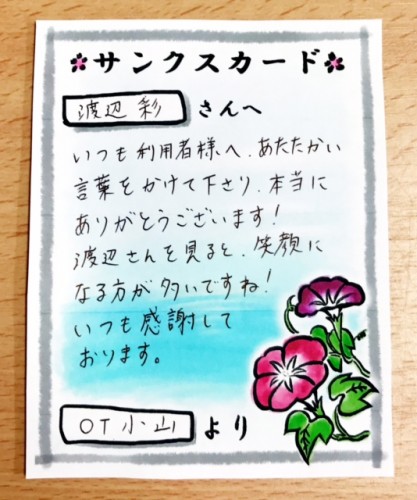 サンクスカード
渡辺 彩 さんへ
いつも利用者様へ、あたたかい
言葉をかけて下さり、本当に
ありがとうございます!
渡辺さんを見ると、笑顔に
なる方が多いですね!
いつも感謝して
おります。
OT 小山 より